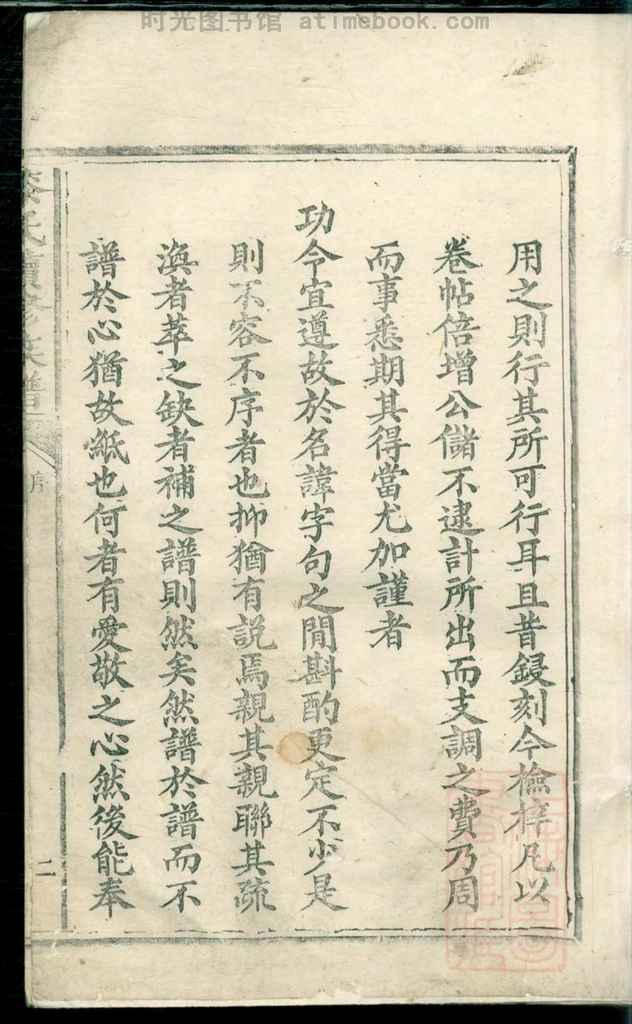 时光图书馆 atimebook.com
用之則行其所可行耳且昔鋟刻今檢梓凡以
卷帖倍增公儲不逮計所出而支調之費乃周
而事悉期其得當尤加謹者
功令宜遵故於名諱字句之閒斟酌更定不少是
則不容不序者也抑猶有說焉親其親聯其疏
渙者萃之缺者補之譜則然矣然譜於譜而不
譜於心猶故紙也何者有愛敬之心然後能奉
氏續修族譜
序
二